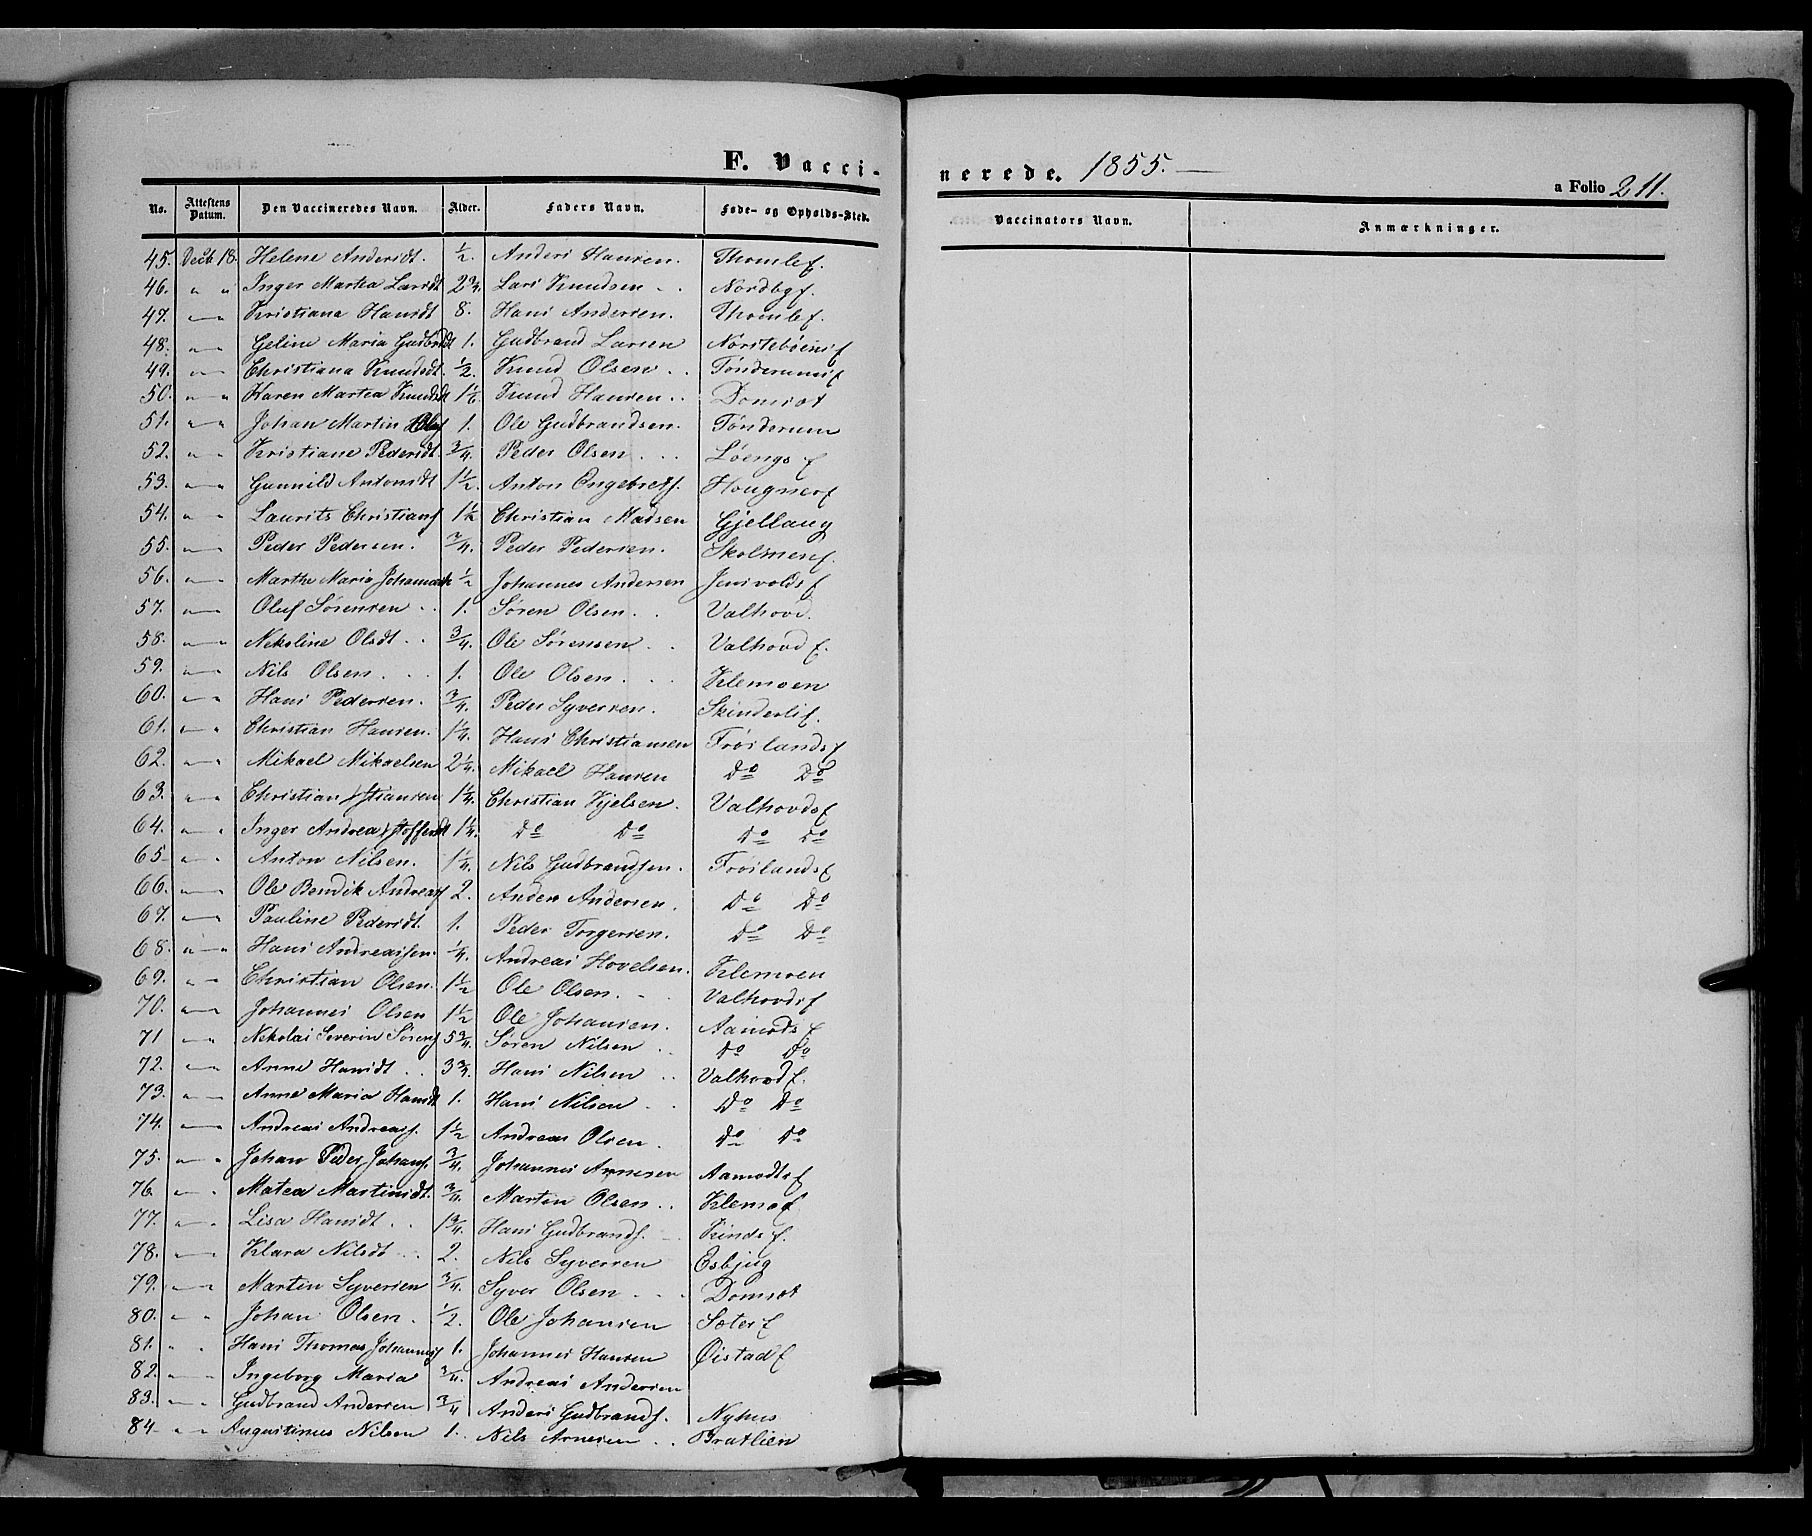 F. Vacci-
nerede. 1855. —
a Folio 211.
No. Attestens Datum. Den Vaccineredes Navn. Alder. Faders Navn. Føde- og Opholds-Sted.
Vaccinators Navn. Anmærkninger.
45. Decb 18. Helene Andersdt. 1/2. Anders Hansen. Thomlef.
46. " " Inger Martha Larsdt 2 3/4. Lars Knudsen . . Nordbgf.
47. " " Kristiana Hansdt 8. Hans Andersen. Thomlef.
48. " " Geline Maria Gudbrdt 1. Gudbrand Larsen
49. " " Christiana Knudsdt. 1/2. Knud Olsen . . Tønderumsf
50. " " Karen Martea Knudsdt 1 1/2. Knud Hansen . . Domsøt
51. " " Johan Martin Olsf 1. Ole Gudbrandsen. Tønderum
52. " " Kristiane Pedersdt. 3/4. Peder Olsen . . . Løengsf
53. " " Gunnild Antonsdt 1 1/2. Anton Engebretf. Hougnerf
54. " " Laurits Christianf 1 1/4 Christian Madsen Gjellaug
55. " " Peder Pedersen. 3/4. Peder Pedersen. Skolmenf.
56. " " Marthe Maria 1/2 Johannes Andersen Jensvoldsf
57. " " Oluf Sørensen . . 1. Søren Olsen . . Valhovd.
58. " " Nekoline Olsdt . . 3/4. Ole Sørensen . . Valhovdf.
59. " " Nils Olsen . . . 1. Ole Olsen . . . Klemoen
60. " " Hans Pedersen. 3/4. Peder Syversen. Skinderlif.
61. " " Christian Hansen. 1 1/4. Hans Christiansen Frøilandsf
62. " " Mikael Mikaelsen 2 1/4. Mikael Hansen Do Do
63. " " Christian Xstiansen 1 1/4. Christian Kjelsen. Valhovdsf
64. " " Inger Andrea 1 1/4. Do Do Do Do
65. " " Anton Nilsen. 1 1/4. Nils Gudbrandsen. Frøilandsf
66. " " Ole Bendik Andreasf 2. Anders Andersen. Do Do
67. " " Pauline Pedersdt. 1. Peder Torgersen. Do Do
68. " " Hans Andreassen. 1/4. Andreas Hovelsen. Klemoen
69. " " Christian Olsen. 1 1/2 Ole Olsen . . Valhovdsf
70. " " Johannes Olsen 1 1/2 Ole Johansen. Aamodsf
71 " " Nekolai Severin Sørensf 5 3/4. Søren Nilsen . . Do Do
72. " " Anne Hansdt . . 3 3/4. Hans Nilsen . . Valhovdf.
73. " " Anne Maria Hansdt 1. Hans Nilsen . . Do Do
74. " " Andreas Andreasf. 1 1/2 Andreas Olsen . Do Do
75. " " Johan Peder Johansf. 3/4. Johannes Arnesen Aamodtsf
76. " " Matea Martinsdt. 3/4. Martin Olsen . . Klemof
77. " " Lisa Hansdt . . 1 3/4. Hans Gudbrandf. Rindsf.
78. " " Klara Nilsdt . . 2. Nils Syversen Osbjug
79. " " Martin Syversen 3/4. Syver Olsen . . . Domsøt
80. " " Johan Olsen. 1/2. Ole Johansen Sæterf
81. " " Hans Thomas Johannesf 1. Johannes Hansen Øistadf
82. " " Ingeborg Maria 3/4. Andreas Andersen
83. " " Gudbrand Andersen 3/4 Anders Gudbrandf. Nyhus
84. " " Augustinus Nilsen 1. Nils Arnesen . . Bratlien